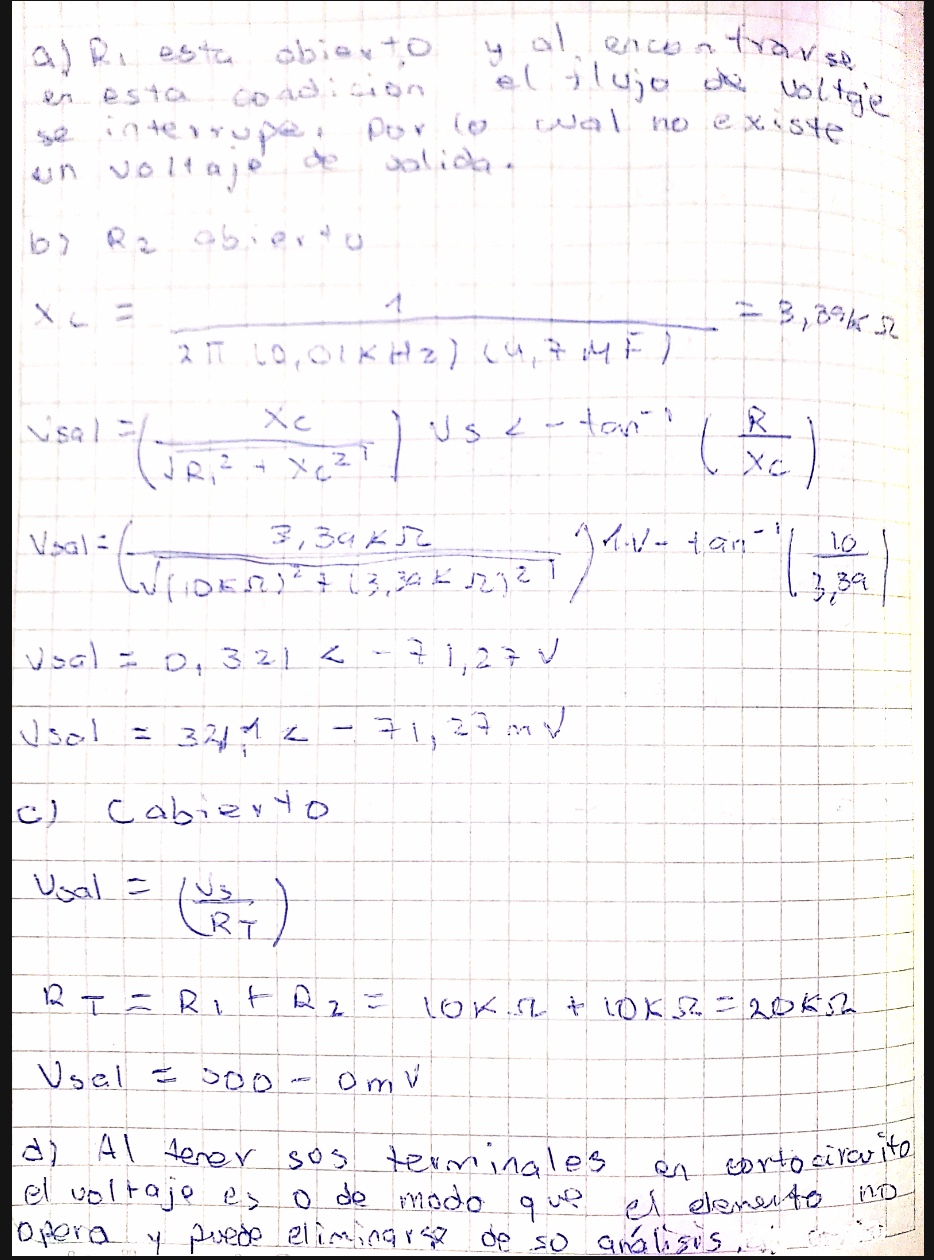 a) R₁ esta abierto y al encontrarse
en esta condicion el flujo de voltaje
se interrupe, por lo cual no existe
un voltaje de salida.
b) R₂ abierto
Xc = 1 / 2π (0,01KHz) (4,7 MF) = 3,39kΩ
Vsal = (Xc / √R₁² + Xc²) Vs < - tan⁻¹ (R / Xc)
Vsal = (3,39KΩ / √(10KΩ)² + (3,39KΩ)²) 1.V - tan⁻¹ (10 / 3,39)
Vsal = 0,321 < -71,27 V
Vsal = 321,1 < -71,27 mV
c) C abierto
Vsal = (Vs / RT)
RT = R₁ + R₂ = 10K.Ω + 10KΩ = 20KΩ
Vsal = 500 - 0mV
d) Al tener sos terminales en cortocircuito
el voltaje es 0 de modo que el elemento no
opera y puede eliminarse de so análisis.